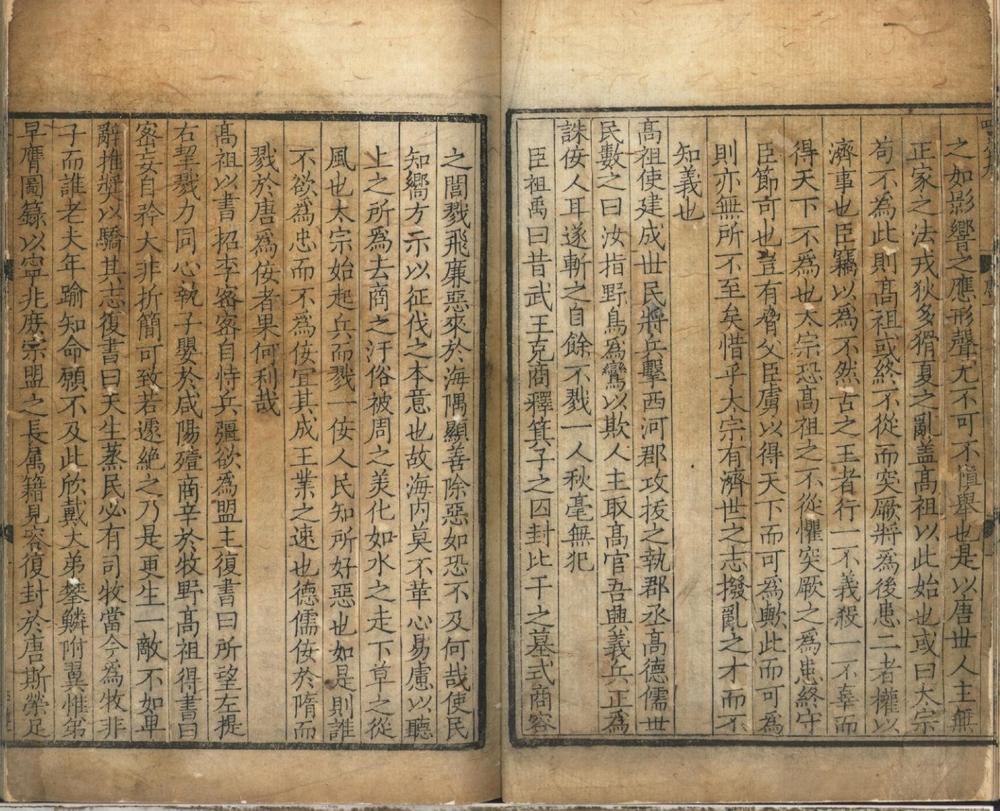 之如影響之應形聲尤不可不慎舉也是以唐世人主無
正家之法戎狄多猾夏之亂蓋髙祖以此始也或曰太宗
苟不為此則髙祖或終不從而突厥將為後患二者權以
濟事也臣竊以為不然古之王者行一不義殺一不辜而
得天下不為也太宗恐髙祖之不從懼突厥之為患終守
臣節可也豈有脅父臣虜以得天下而可為歟此而可為
則亦無所不至矣惜乎太宗有濟世之志撥亂之才而不
知義也
髙祖使建成世民將兵擊西河郡攻拔之執郡丞髙德儒世
民數之曰汝指野鳥為鸞以欺人主取髙官吾興義兵正為
誅佞人耳遂斬之自餘不戮一人秋毫無犯
臣祖禹曰昔武王克商釋箕子之囚封比干之墓式商容
之閭戮飛廉惡來於海隅顯善除惡如恐不及何哉使民
知嚮方示以征伐之本意也故海內莫不革心易慮以聽
上之所為去商之汙俗被周之美化如水之走下草之從
風也太宗始起兵而戮一佞人民知所好惡也如是則誰
不欲為忠而不為佞宜其成王業之速也德儒佞於隋而
戮於唐為佞者果何利哉
髙祖以書招李密密自恃兵彊欲為盟主復書曰所望左提
右挈戮力同心執子嬰於咸陽殪商辛於牧野髙祖得書曰
密妄自矜大非折簡可致若遽絕之乃是更生一敵不如卑
辭推奬以驕其志復書曰天生蒸民必有司牧當今為牧非
子而誰老夫年踰知命願不及此欣戴大弟攀鱗附翼惟弟
早膺圖籙以寧兆庶宗盟之長屬籍見容復封於唐斯榮足